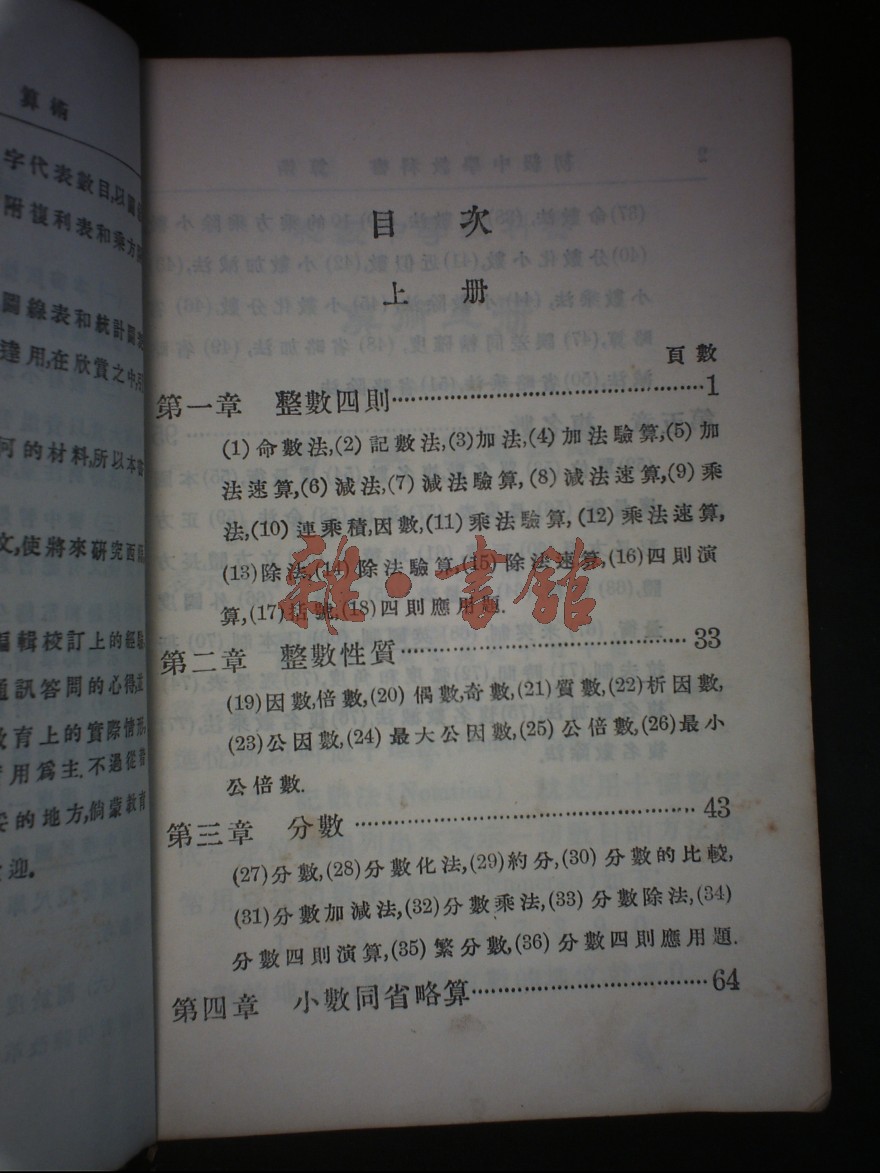 算術
字代表數目,以圖
附複利表和乘方
圖線表和統計圖
違用,在欣賞之中
何的材料,所以本
文,使將來研究西
編輯校訂上的經
通訊答問的心得
教育上的實際情形
用爲主.不過從
妥的地方,倘蒙教育
迎.
目 次
上 册
頁數
第一章 整數四則……1
(1)命數法,(2)記數法,(3)加法,(4)加法驗算,(5)加
法速算,(6)減法,(7)減法驗算,(8)減法速算,(9)乘
法,(10)連乘積,因數,(11)乘法驗算,(12)乘法速算,
(13)除法,(14)除法驗算,(15)除法速算,(16)四則演
算,(17)括號,(18)四則應用題.
第二章 整數性質……33
(19)因數,倍數,(20)偶數,奇數,(21)質數,(22)析因數,
(23)公因數,(24)最大公因數,(25)公倍數,(26)最小
公倍數.
第三章 分數……43
(27)分數,(28)分數化法,(29)約分,(30)分數的比較,
(31)分數加減法,(32)分數乘法,(33)分數除法,(34)
分數四則演算,(35)繁分數,(36)分數四則應用題.
第四章 小數同省略算……64
雜·書館